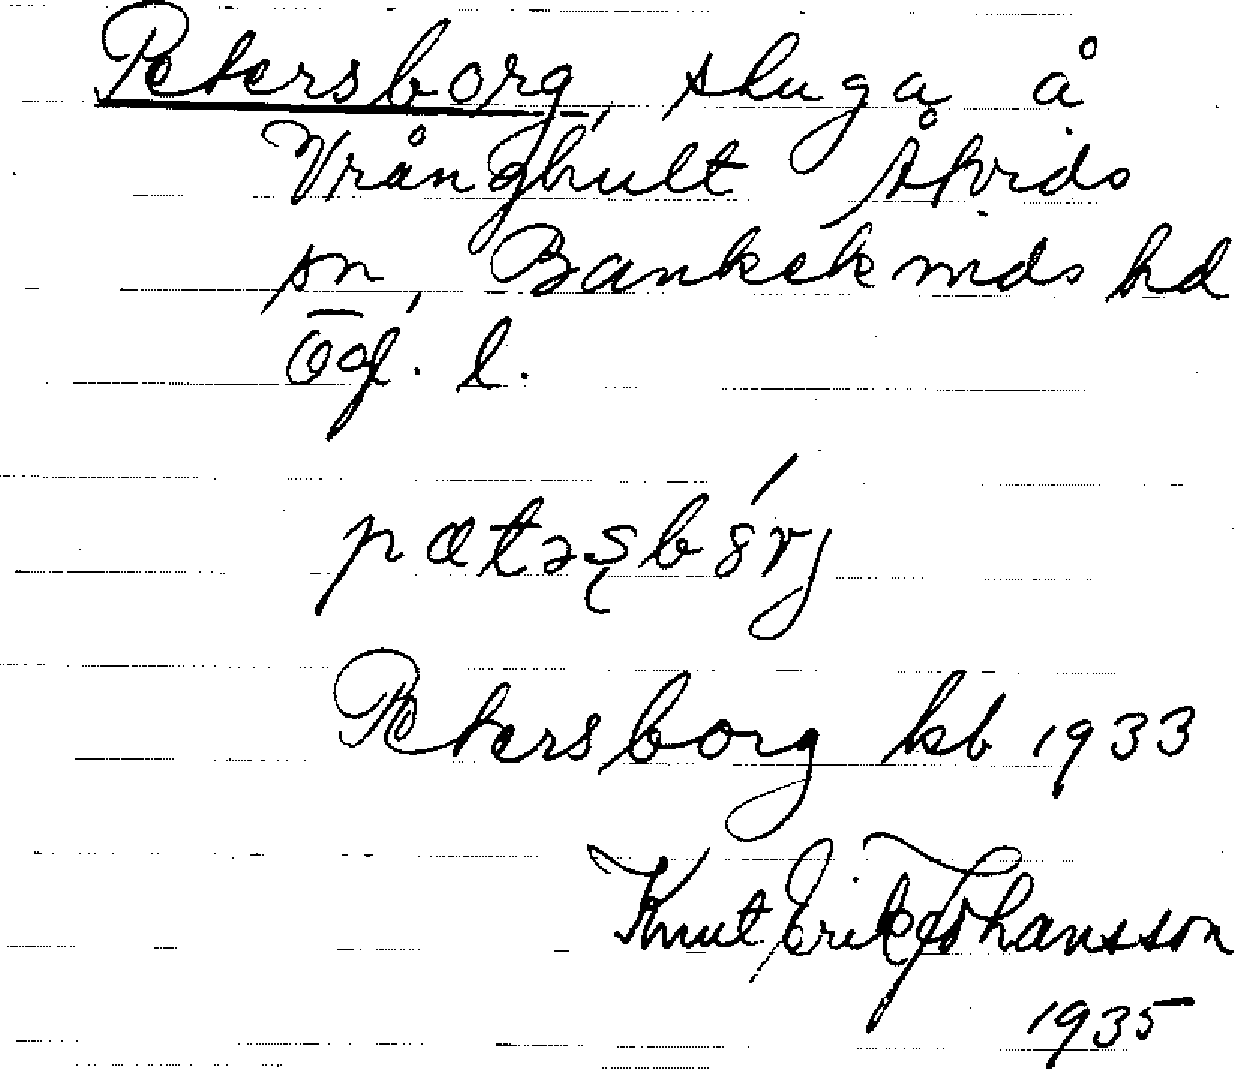 Petersborg, stuga å
Vrånghult Åtvids
sn, Bankekinds hd
Ögl. l.
pætəsbórj
Petersborg kb 1933
Knut Erik Johansson
1935